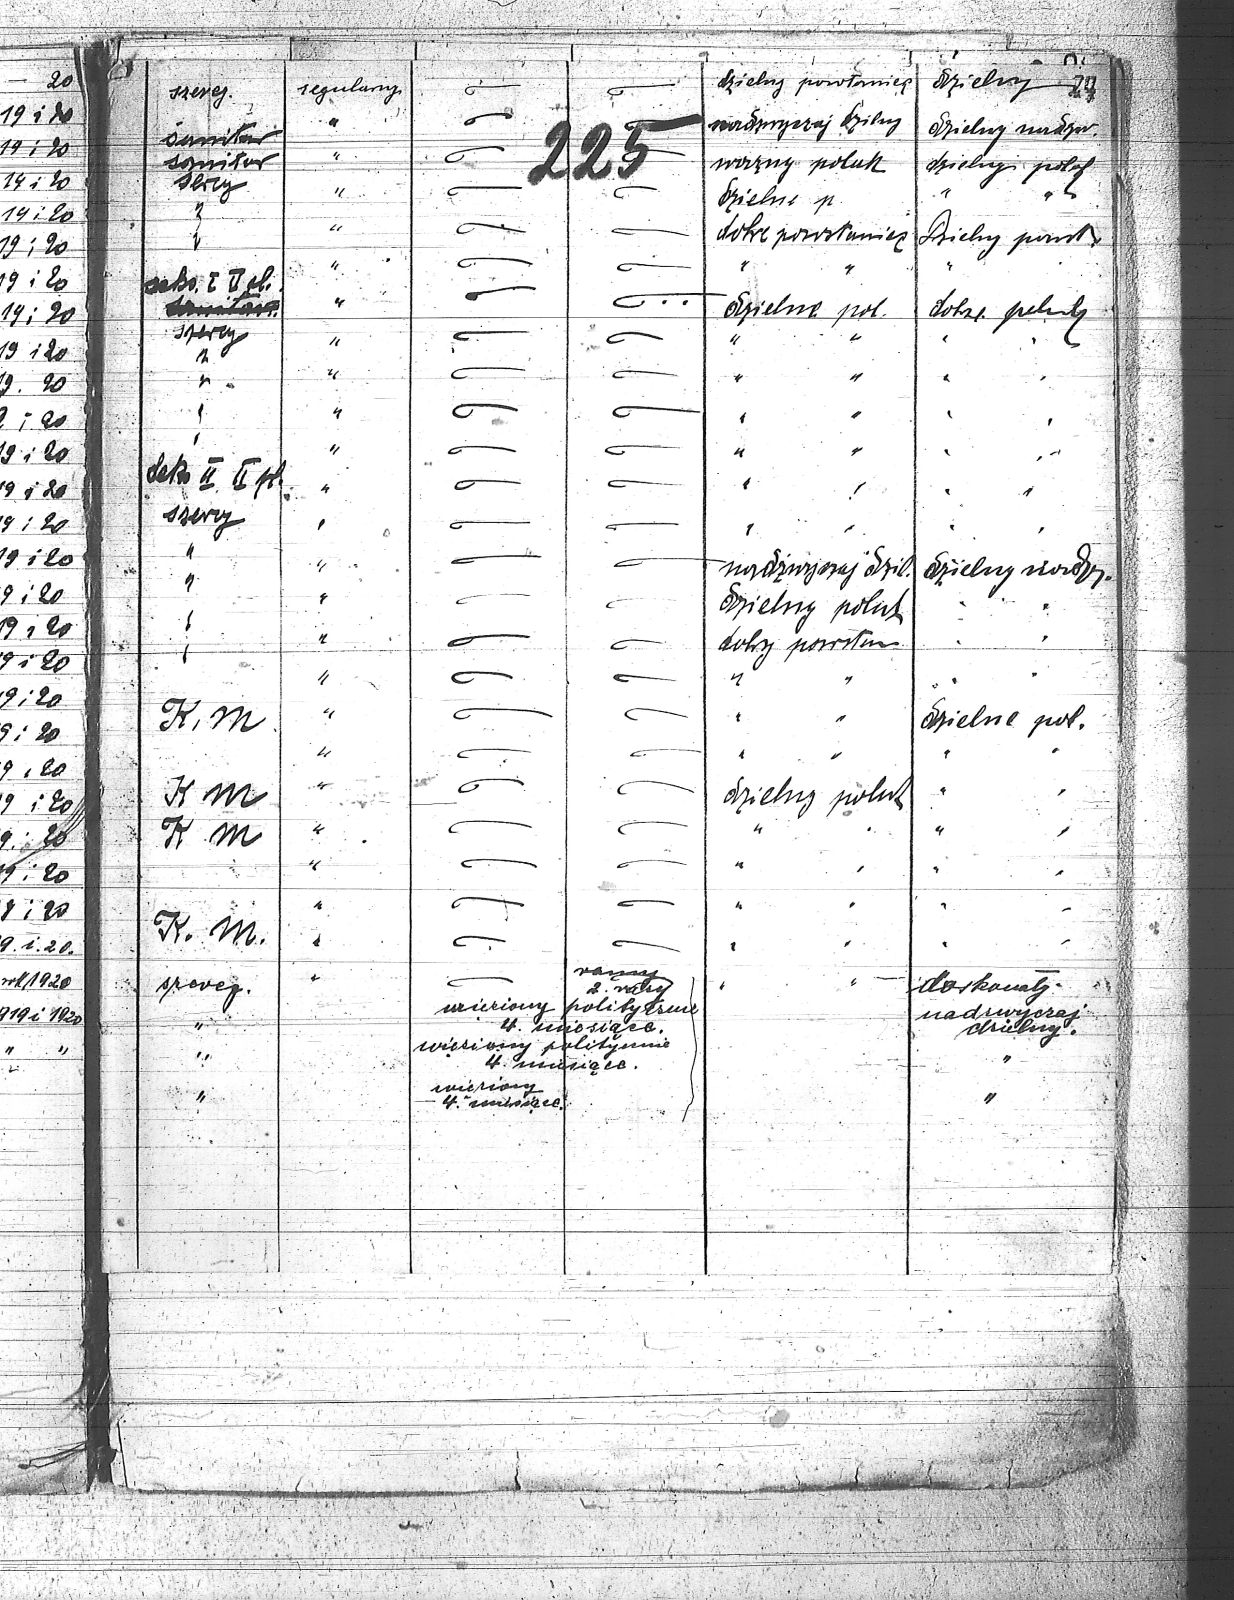 20 szereg. regularny dzielny powstaniec dzielny 24
19 i 20 " nadzwyczaj dzielny dzielny nadzw.
225
19 i 20 sanitar " ważny polak dzielny polak
19 i 20 sanitar
szereg " dzielne p. " "
19 i 20 " " dobre powstaniec dzielny powst.
19 i 20 " " " " "
19 i 20 seks. I II pl.
19 i 20 " dzielne pol. dobre polak
szereg " " " " "
19 i 20 " " " " " "
19. 20 " " " " " "
i 20 " " " " " "
19 i 20
19 i 20 seks II II pl. " " " " "
19 i 20 szereg " " " " "
19 i 20 " " nadzwyczaj dziel. dzielny nadzw.
9 i 20 " " dzielny polak " "
19 i 20 " " dobry powstan " "
9 i 20 " " " " "
9 i 20 K. M " " " dzielne pol.
9 i 20 " " " " "
9 i 20 K M " dzielny polak " "
9 i 20 K M " " " " "
9 i 20 " " " " "
19 i 20 " " " " "
9 i 20 K. M. " " " " "
9. i. 20.
1920 szereg. " ranny " " doskonały.
2. razy
1919 i 1920 " więziony politycznie nadzwyczaj
4. miesiące. dzielny.
" " " więziony politycznie "
4. miesiące.
" więziony "
4. miesiące.